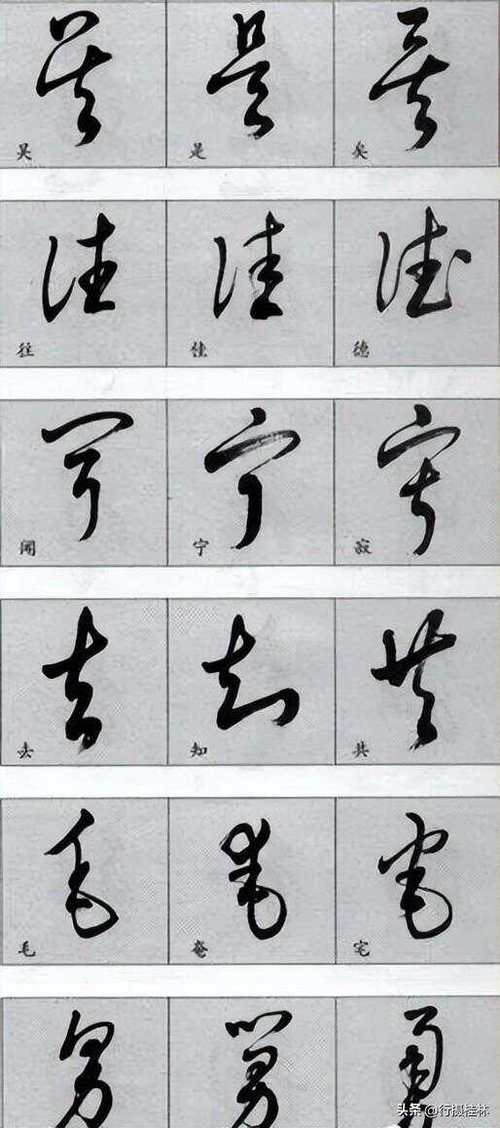 吴 是 矣
往 佳 德
闻 宁 寂
去 知 共
毛 奄 宅
头条 @行摄桂林